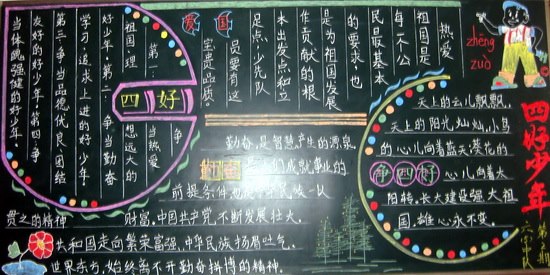 热爱
祖国是
每一个公
民最基本
的要求,也
是为祖国发展
作贡献的根
本出发点和立
足点,少先队
员要有这
宝贵品质。
爱国
zhēng
zuò
四好少年
四好
第一:争当热爱
祖国,理想远大的
好少年·第二:争当勤奋
学习,追求上进的好少年
第三:争当品德优良,团结
友好的好少年·第四:争
当体魄强健的好少年。
勤奋,是智慧产生的源泉
勤奋 是人们成就事业的
前提条件,也是中华民族一以
贯之的精神财富,中国共产党不断发展壮大,
共和国走向繁荣富强,中华民族扬眉吐气,
世界东方,始终离不开勤奋拼搏的精神。
天上的云儿飘飘,
天上的阳光灿灿,小鸟
的心儿向着蓝天,葵花的
争四好 心儿向着太
阳转,长大建设强大祖
国,雄心永不变。